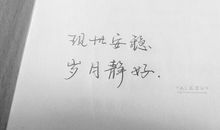 现世安稳
岁月静好.